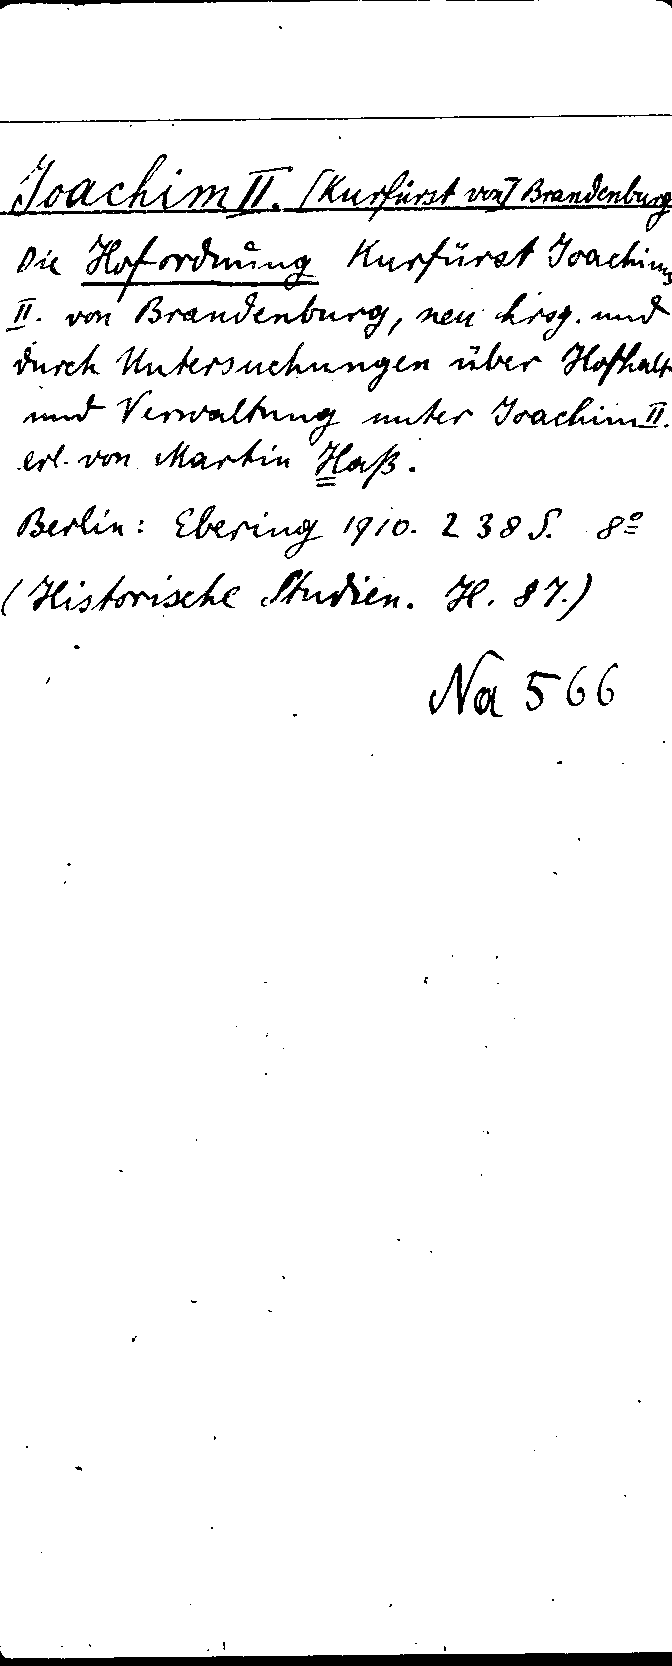 Joachim II. [Kurfürst von] Brandenburg
Die Hofordnung Kurfürst Joachims
II. von Brandenburg, neu hrsg. und
durch Untersuchungen über Hofhalt
und Verwaltung unter Joachim II.
erl. von Martin Haß.
Berlin: Ebering 1910. 238 S. 8º
(Historische Studien. H. 87.)
Na 566